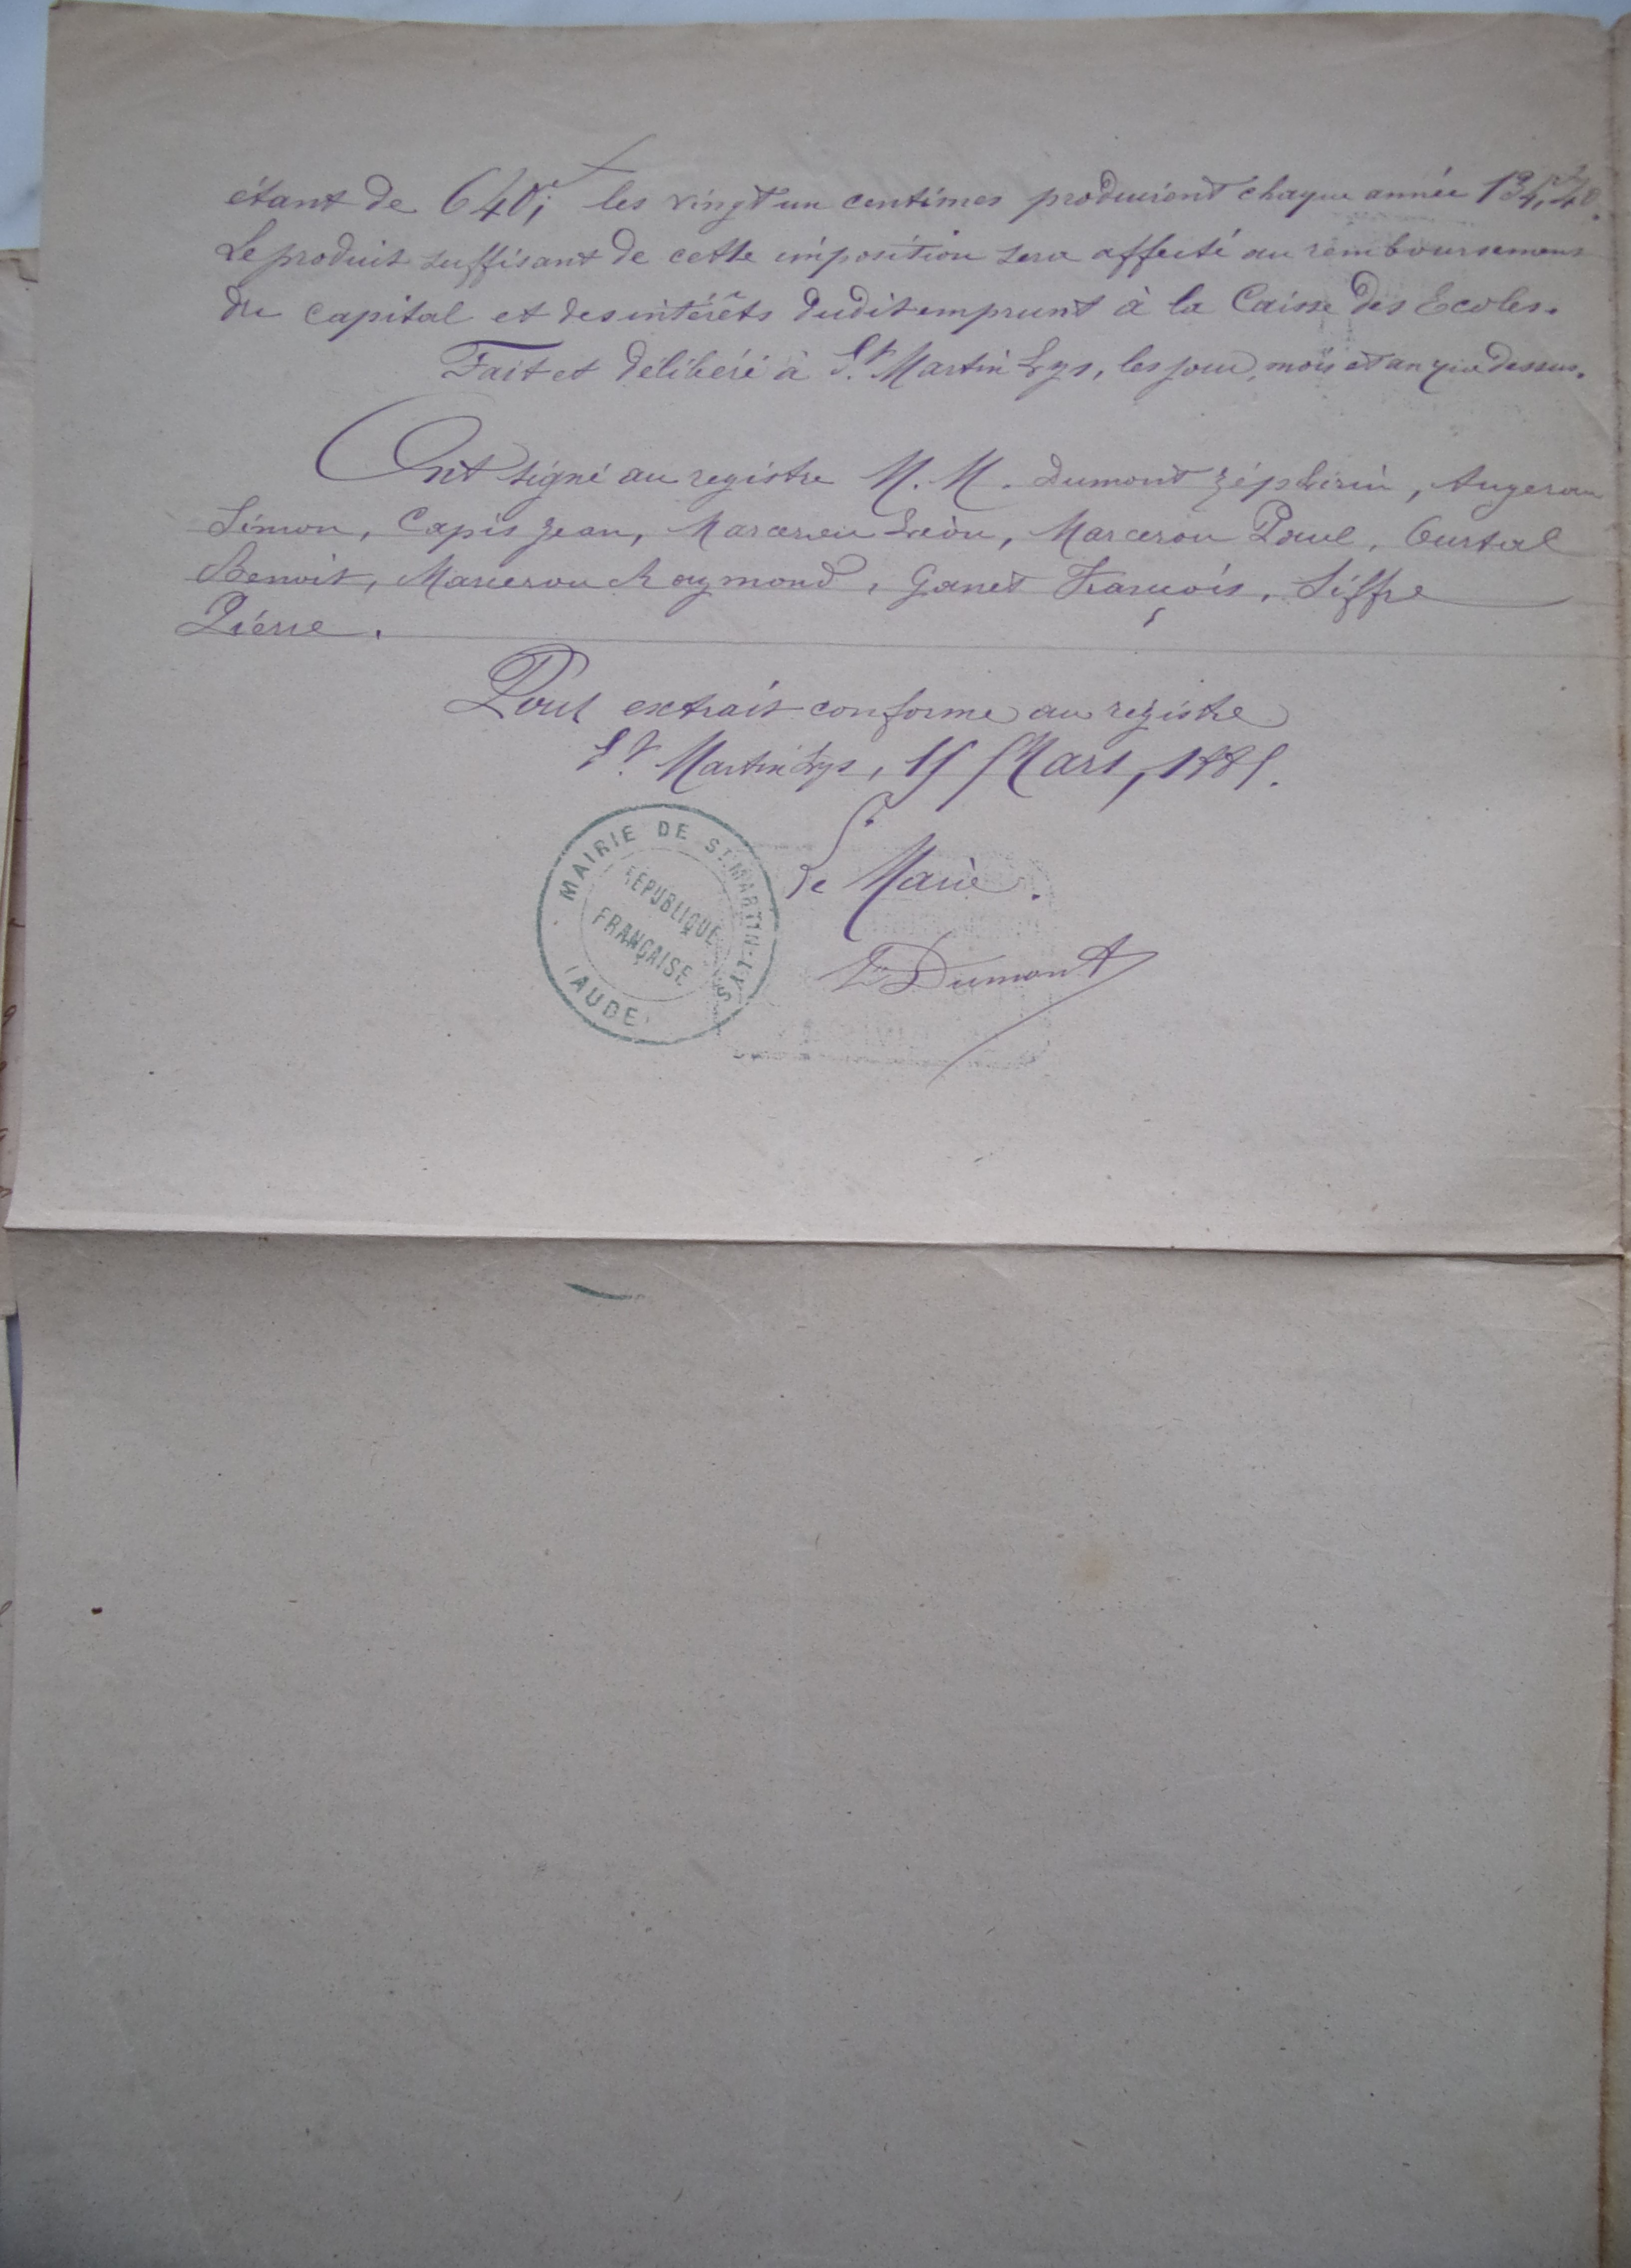 étant de 640f; les vingt un centimes produiront chaque année 134,40.
Le produit suffisant de cette imposition sera affecté au remboursement
du capital et des intérêts dudit emprunt à la Caisse des Ecoles.
Fait et délibéré à St. Martin Lys, les jour, mois et an que dessus.
Ont signé au registre M. M. Dumont Zéphirin, Augerou
Simon, Capis Jean, Marcerou Léon, Marcerou Paul, Courtal
Benoit, Marcerou Raymond, Ganet François, Siffre
Pierre.
Pour extrait conforme au registre
St. Martin Lys, 15 Mars, 1885.
MAIRIE DE ST MARTIN-LYS
RÉPUBLIQUE
FRANÇAISE
(AUDE)
Le Maire.
Dumont